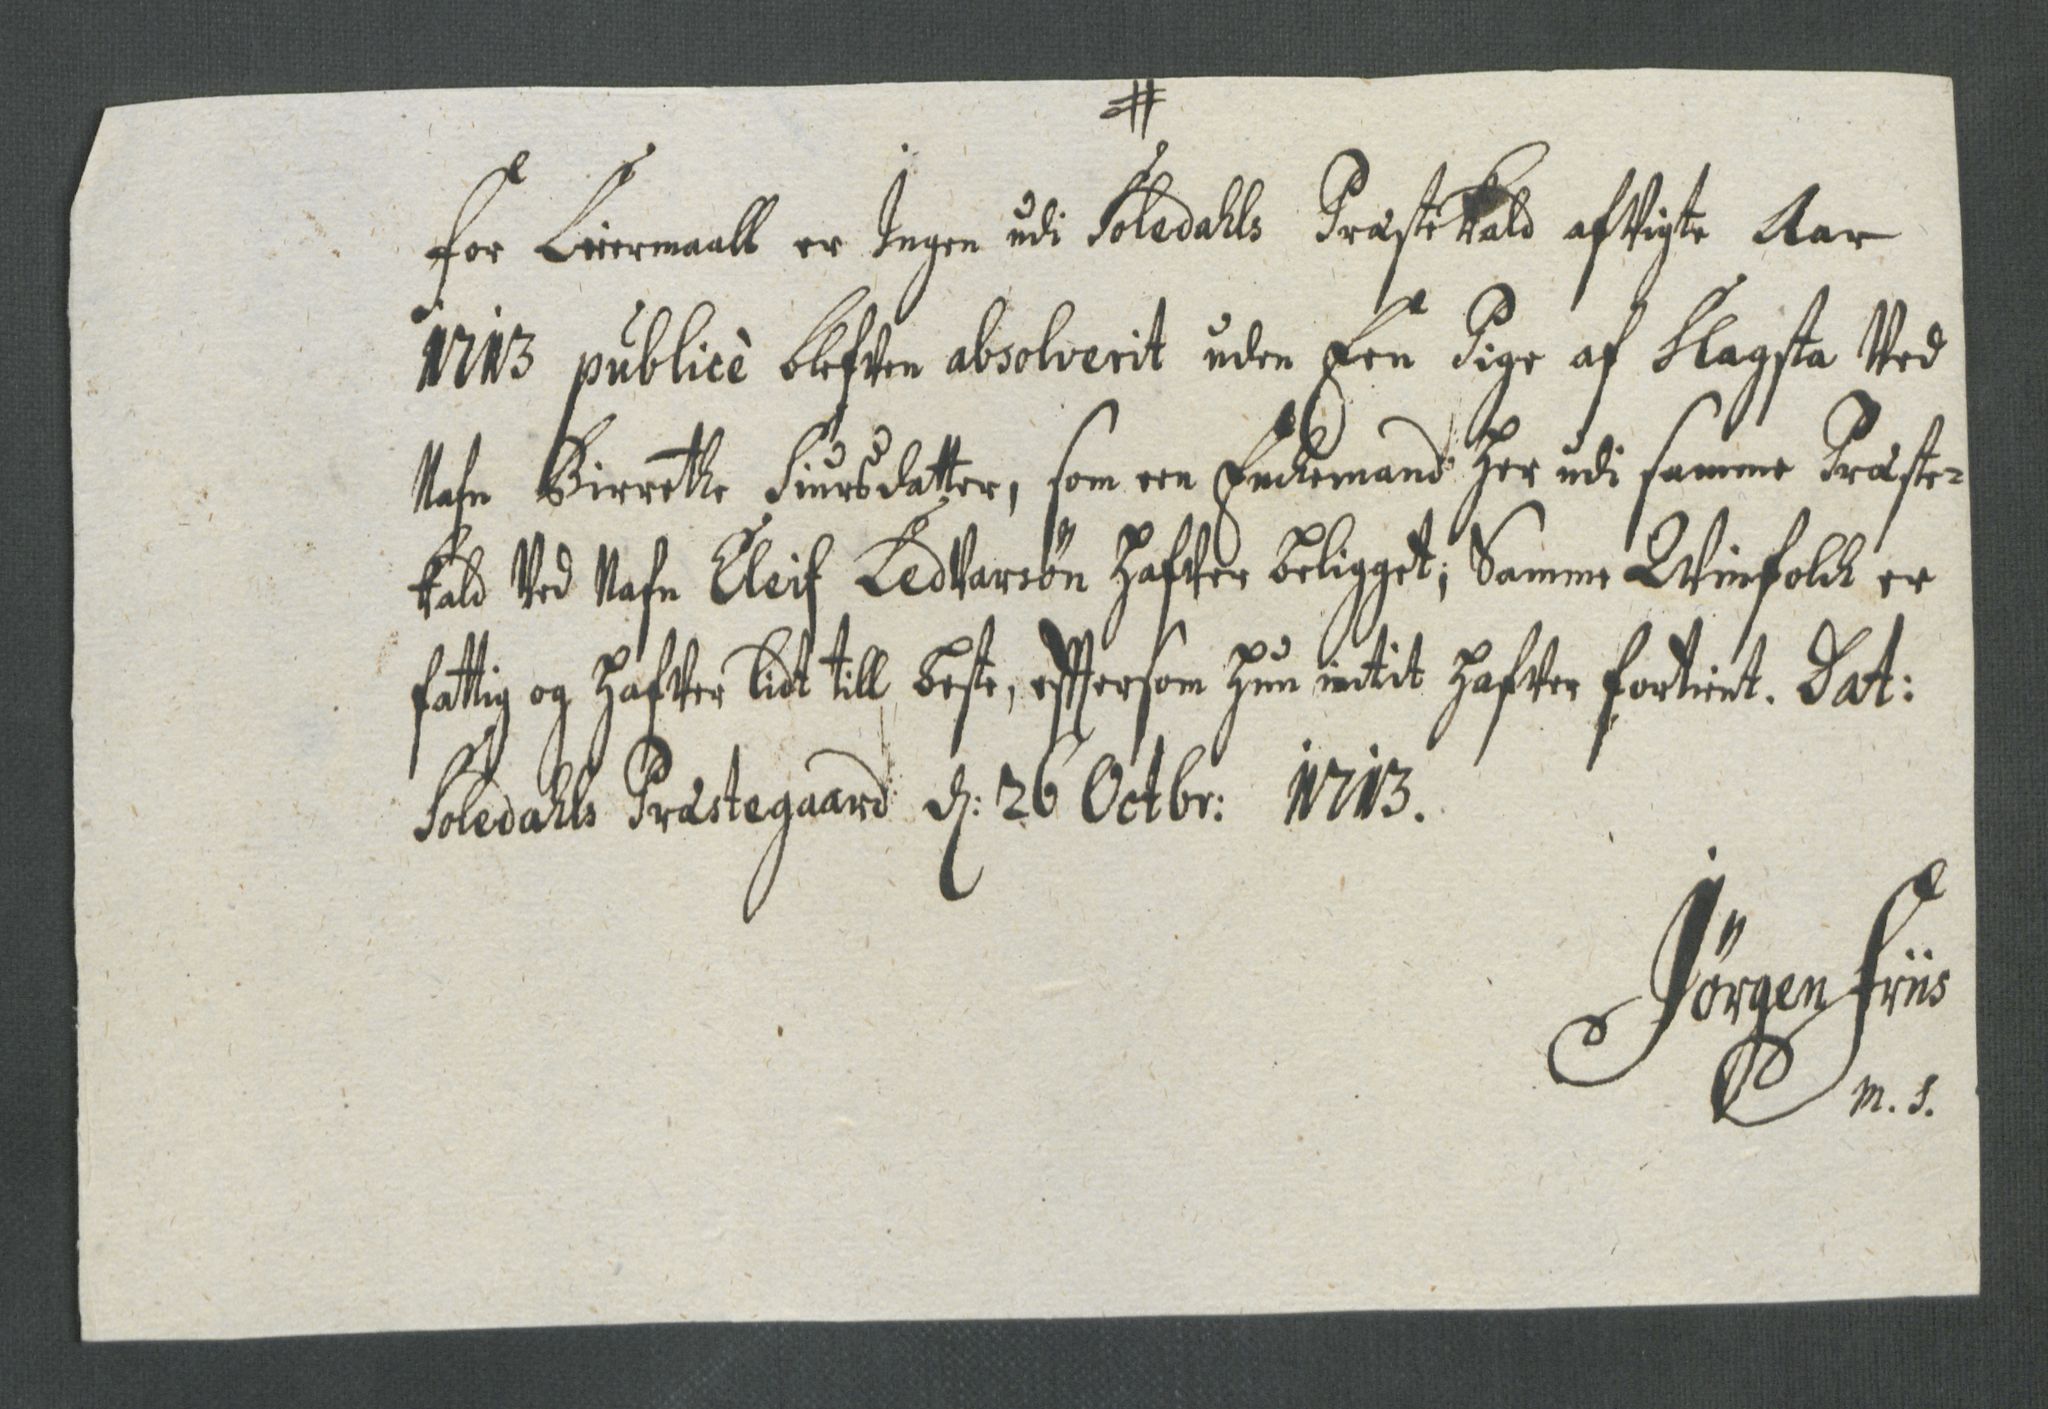 #
for Leiermaall er Ingen udi Soledahls Præstekald afvigte Aar
1713 publicè blefven absolverit uden Een Pige af Slagsta Ved
Nafn Birrethe Siursdatter, som een Enckemand her udi samme Præste-
kald Ved Nafn Eleif Ledvarsön hafver beligget; Samme Qvinfolch er
fattig og hafver lidt till beste, efftersom hun intit hafver fortient. Dat:
Soledahls Præstegaard d: 26 Octbr: 1713.
Jörgen Friis
m. s.